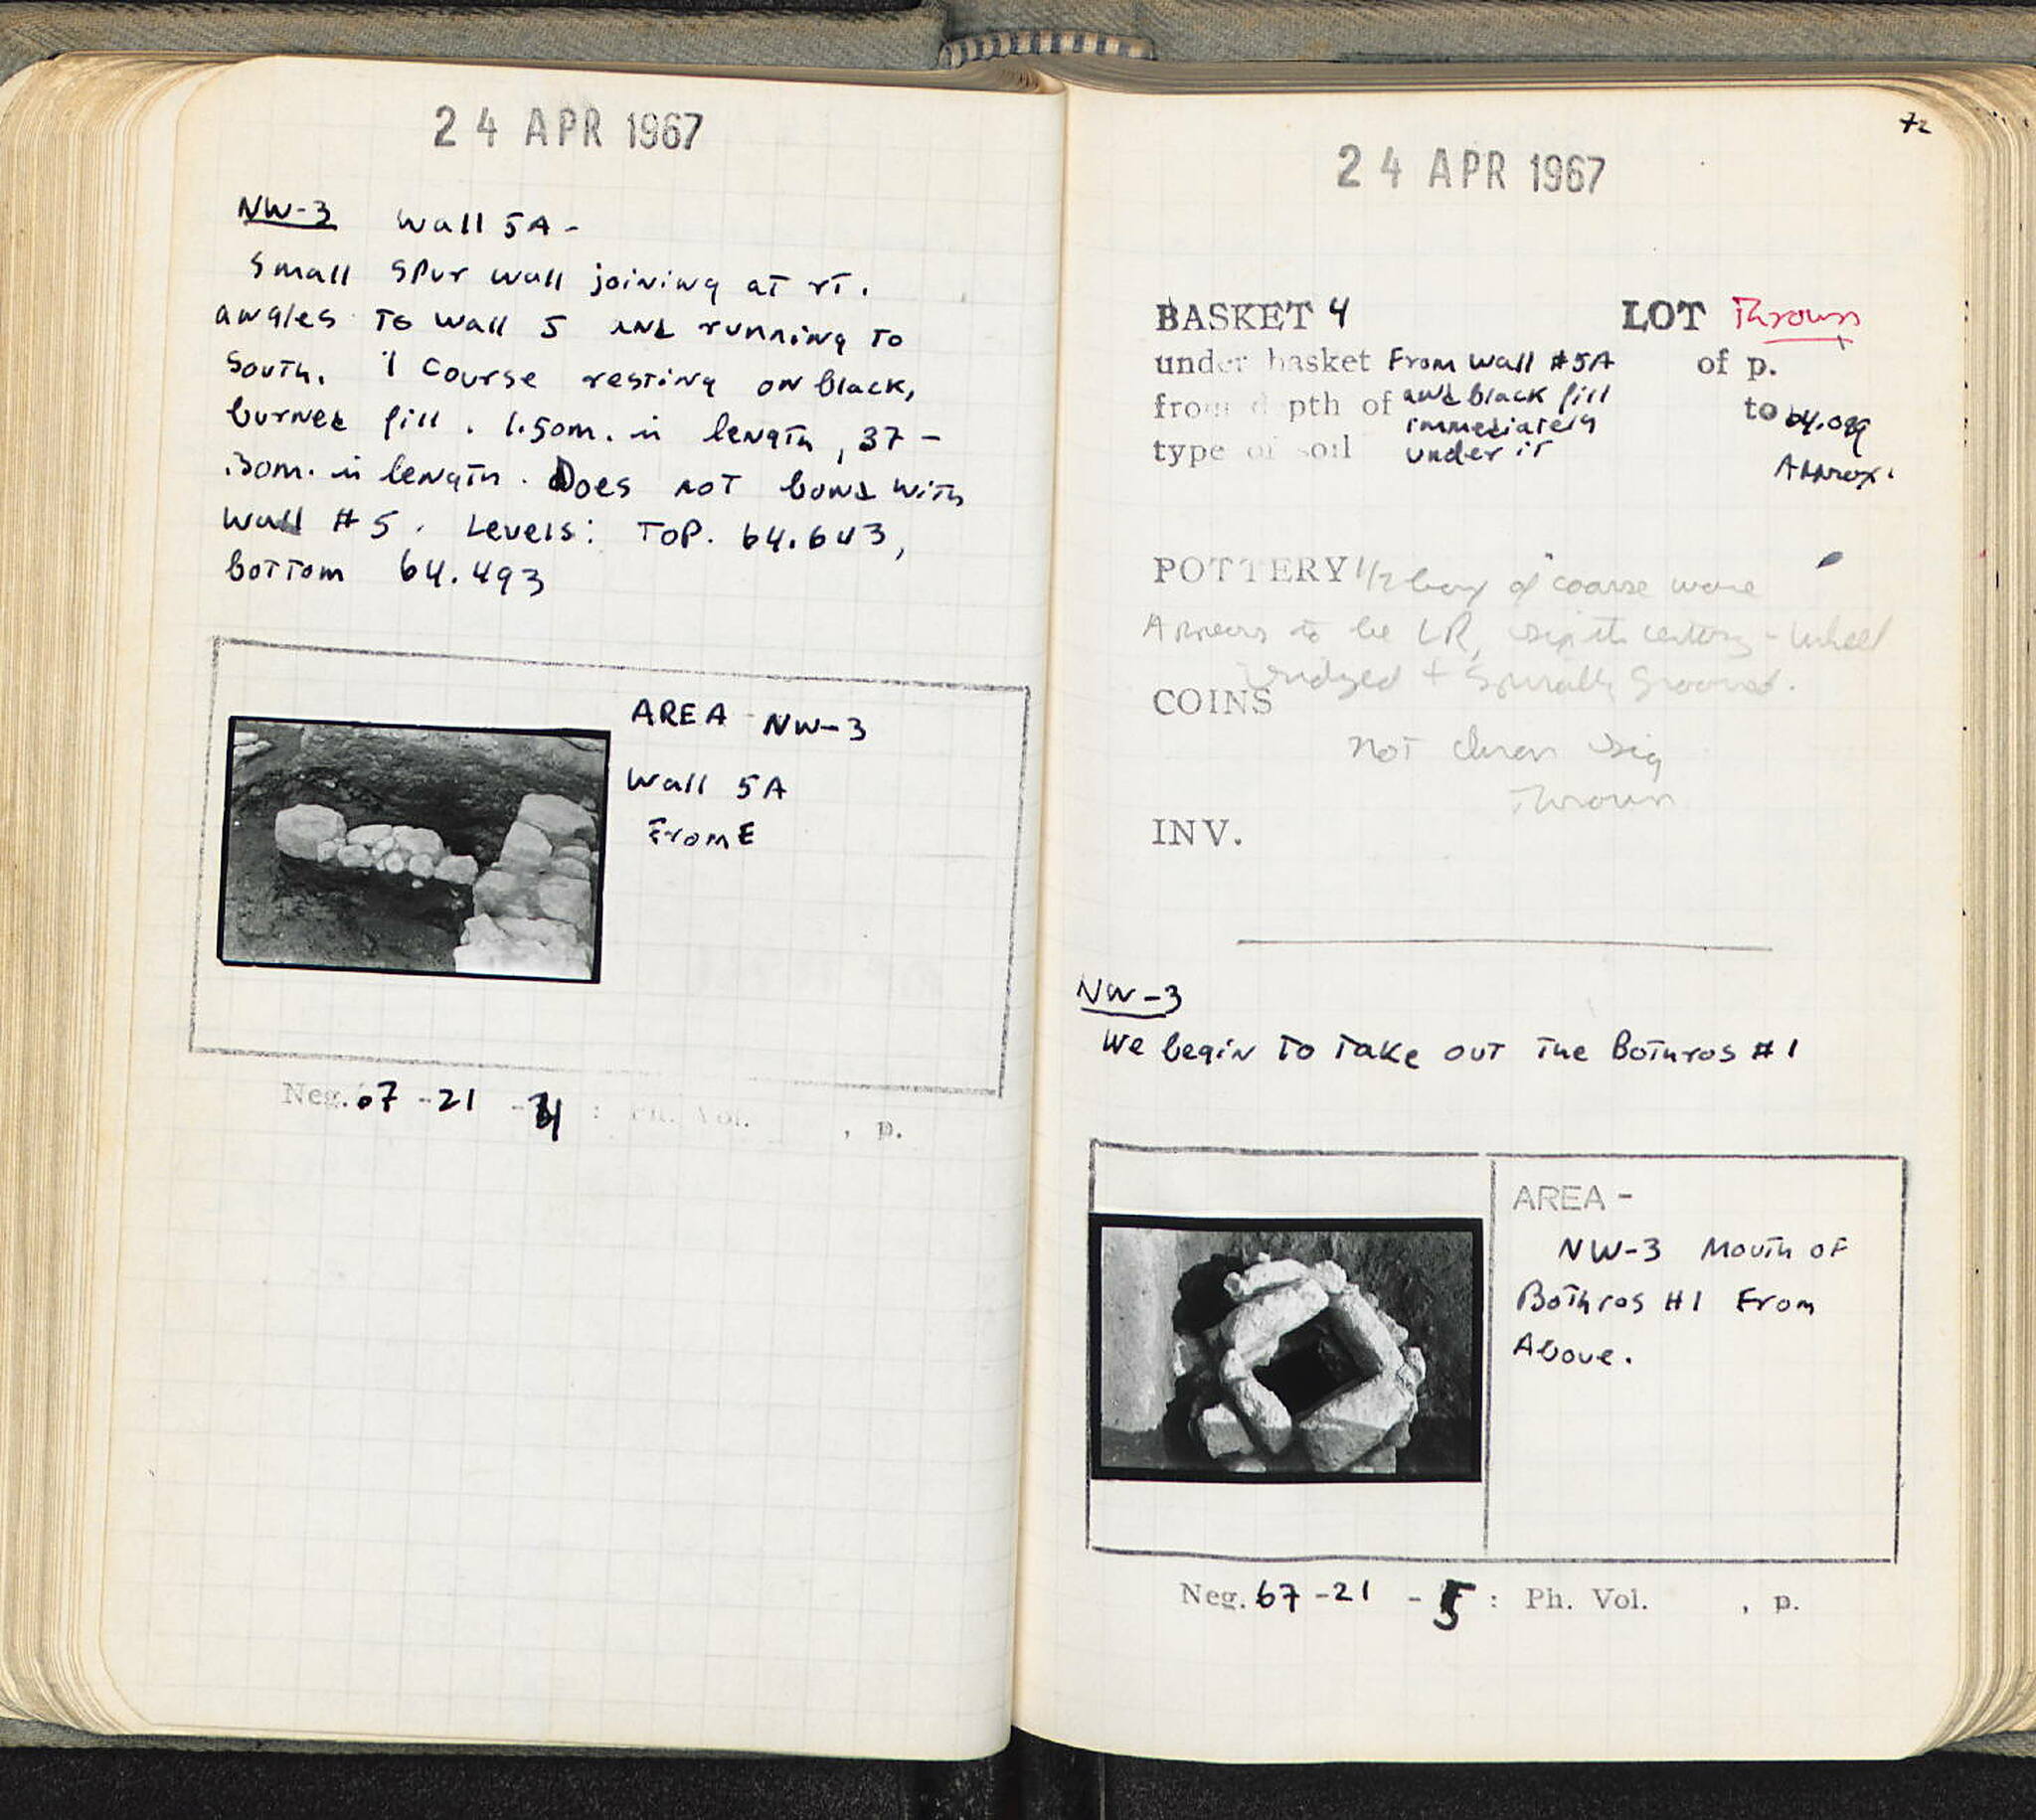 24 APR 1967
NW-3 Wall 5A -
Small spur wall joining at rt.
angles to wall 5 and running to
South. 1 course resting on black,
burned fill. 1.50m. in length, 37 -
.30m. in length. Does not bond with
Wall #5. Levels: Top. 64.643,
bottom 64.493
AREA NW-3
Wall 5A
From E
Neg. 67 -21 -4 : Ph. Vol. , p.
72
24 APR 1967
BASKET 4 LOT Thrown
under basket From Wall #5A of p.
from depth of and black fill to 64.099
immediately
type of soil under it Approx.
POTTERY 1/2 box of coarse ware
Appears to be LR, sixth century - wheel
ridged + spirally grooved.
COINS
Not chron sig
Thrown
INV.
NW-3
We begin to take out the Bothros #1
AREA -
NW-3 Mouth of
Bothros #1 From
Above.
Neg. 67 -21 -5 : Ph. Vol. , p.